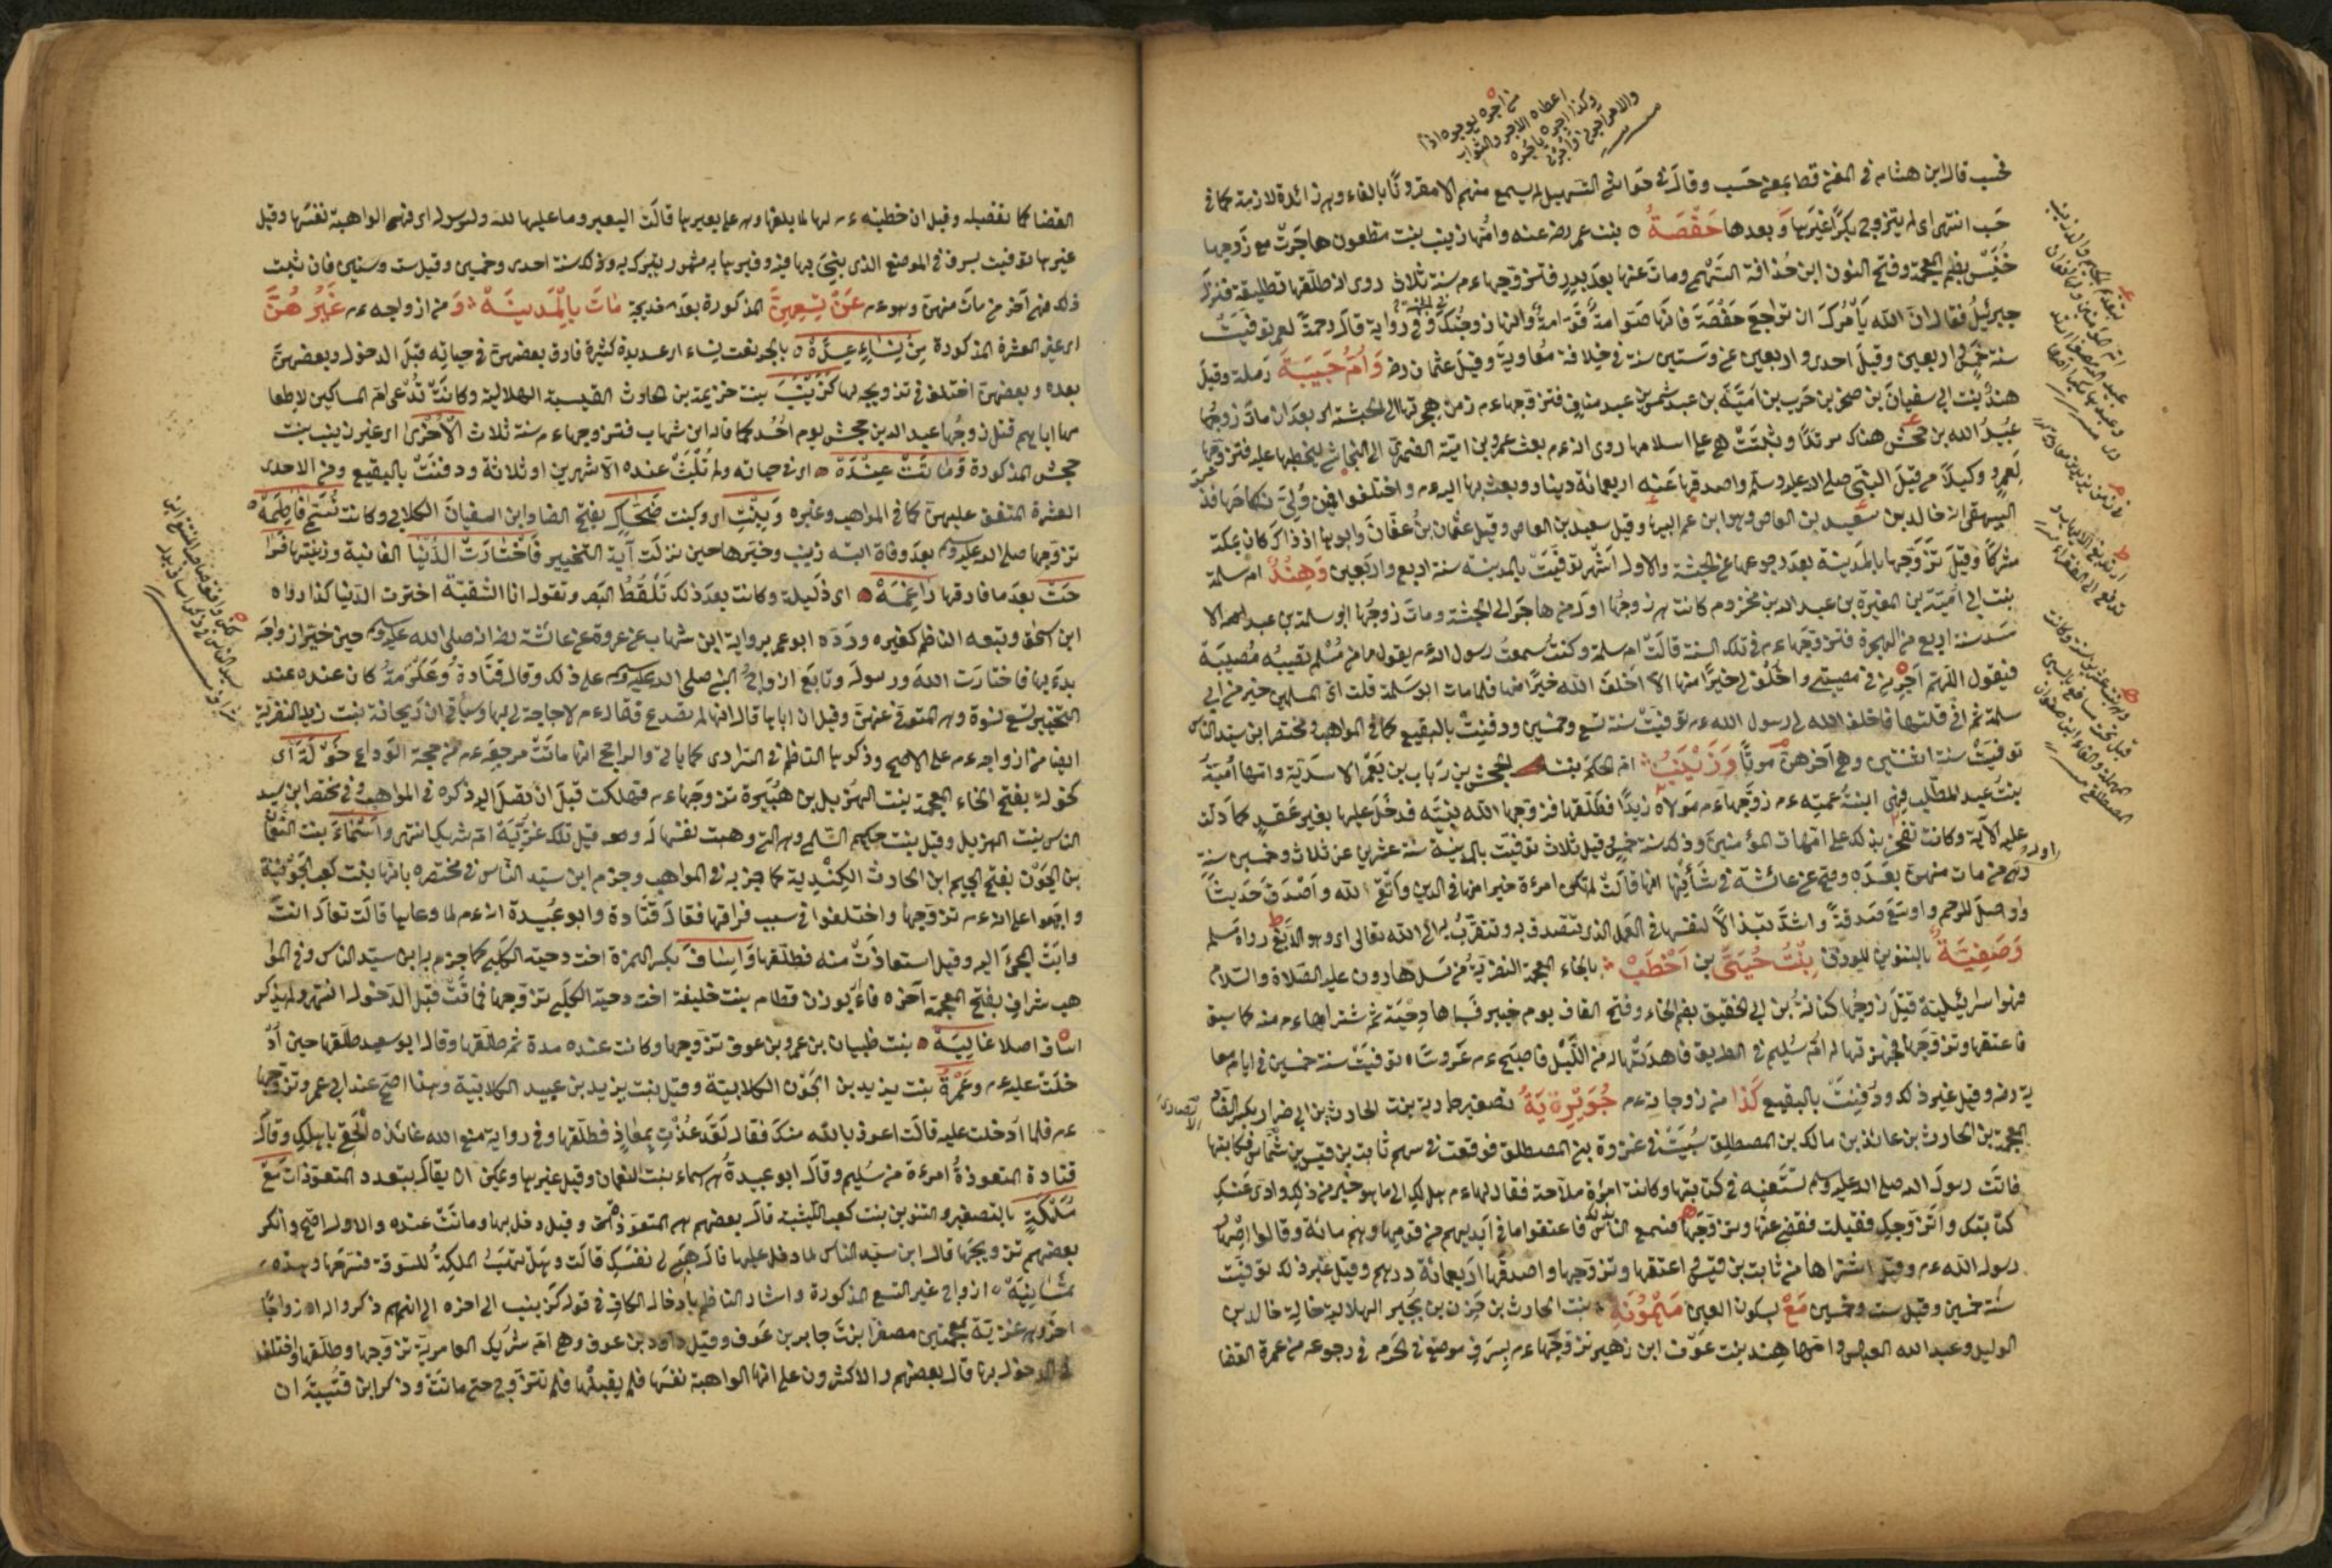 فحسب قال ابن هشام في المغني قط بمعنى حسب وقال في حواشي التسهيل لم يسمع منهم الا مقرونًا بالفاء وهي زائدة لازمة كما في
حسب انتهى اي لم يتزوج بكرًا غيرها وَبعدها حَفْصَةُ ٥ بنت عمر رضي عنه وامّها زينب بنت مظعون هاجرت مع زوجها
خُنَيس بضم المعجمة وفتح النون ابن حُذافة السّهمي ومات عنها بعد بدر فتزوجها ءم سنة ثلاث روى انه طلقها تطليقة فنزل
جبرئيل فقال ان الله يأمرك ان تراجع حفصة فانها صوامة قوامة وانها زوجتك في الجنة وفي رواية قال رحمة لعمر توفيت
سنة خمس واربعين وقيل احدى واربعين عن وستين سنة في خلافة معاوية وقيل عثمان رضي وَاُمُّ حَبِيبَةَ رملة وقيل
هند بنت ابي سفيان بن صخر بن حرب بن امية بن عبد شمس بن عبد مناف فتزوجها ءم زمن هجرتها الى الحبشة اي بعد ان مات زوجها
عبيد الله بن جحش هناك مرتدًا وثبتت هي على اسلامها روى انه ءم بعث عمرو بن امية الضمري الى النجاشي ليخطبها عليه فتزوجها
لعمرو وكيلًا من قبل النبي صلى الله عليه وسلم واصدقها عنه اربعمائة دينار وبعث بها اليه ءم واختلفوا فيمن ولي نكاحها فذ
البيهقي انه خالد بن سعيد بن العاص وهو ابن عم ابيها وقيل سعيد بن العاص وقيل عثمان بن عفان وابوها اذ ذاك كان بمكة
مشركًا وقيل تزوجها بالمدينة بعد رجوعها عن الحبشة والاول اشهر توفيت بالمدينة سنة اربع واربعين وَهِنْدٌ ام سلمة
بنت ابي امية بن المغيرة بن عبد الله بن مخزوم كانت هي زوجها اول من هاجر الى الحبشة ومات زوجها ابو سلمة بن عبد الاسد
سنة اربع من الهجرة فتزوجها ءم في تلك السنة قالت ام سلمة وكنت سمعت رسول الله ءم يقول ما من مسلم تصيبه مصيبة
فيقول اللهم اجرني في مصيبتي واخلف لي خيرًا منها الا اخلف الله خيرًا منها فلما مات ابو سلمة قلت اي المسلمين خير من ابي
سلمة ثم اني قلتها فاخلف الله لي رسول الله ءم توفيت سنة تسع وخمسين ودفنت بالبقيع كما في المواهب ومختصر ابن سيد الناس
توفيت سنة اثنتين وهي آخرهن موتًا وَزَيْنَبُ ام الحكم بنت جحش بن رباب بن يعمر الاسدية وامها اميمة
بنت عبد المطلب فهي ابنة عمته ءم زوجها ءم مولاه زيدًا فطلقها فزوجها الله نبيه فدخل عليها بغير عقد كما دلت
عليه الآية وكانت تفخر بذلك على امهات المؤمنين وذلك سنة خمس وقيل ثلاث توفيت بالمدينة سنة عشرين عن ثلاث وخمسين سنة
وهي من مات منهن بعده وصح عن عائشة في شأنها انها قالت لم تكن امرءة خير منها في الدين واتقى لله واصدق حديثًا
واوصل للرحم واوسع صدقة واشد تبذالًا لنفسها في العمل الذي تتصدق به وتتقرب به الى الله تعالى اي وهو الدبغ رواه مسلم
وَصَفِيَّةُ بالتنوين للوزن بِنْتُ حُيَيِّ بن اَخْطَبْ بالخاء المعجمة النضرية من نسل هارون عليه الصلاة والسلام
فهو اسرائيلية قتل زوجها كنانة بن ابي الحقيق بضم الحاء وفتح القاف يوم خيبر فسباها دحية ثم شتراها ءم منه كما سبق
فاعتقها وتزوجها فجهزتها له ام سليم في الطريق فاهدتها له من الليل فاصبح ءم عروسًا توفيت سنة خمسين في ايام معا
ية رضي وقيل غير ذلك ودفنت بالبقيع كَذا من زوجاته ءم جُوَيْرِيَةُ تصغير جارية بنت الحارث بن ابي ضرار بكسر الضاد
المعجمة بن الحارث بن عائذ بن مالك بن المصطلق سبيت في غزوة بني المصطلق فوقعت في سهم ثابت بن قيس بن شماس فكاتبها
فاتت رسول الله صلى الله عليه وسلم تستعينه في كتابتها وكانت امرأة ملاحة فقال لها ءم هل لك الى ما هو خير من ذلك اودي عنك
كتابتك واتزوجك فقبلت فقضى عنها وتزوجها فسمع الناس فاعتقوا ما في ايديهم من قومها وهم مائة وقالوا اصهار
رسول الله ءم وقيل اشتراها من ثابت بن قيس اعتقها وتزوجها واصدقها اربعمائة درهم وقيل غير ذلك توفيت
سنة خمسين وقيل ست وخمسين مَعْ بسكون العين مَيْمُونَةِ بنت الحارث بن حزن بن بجير الهلالية خالة خالد بن
الوليد وعبد الله العباس وامها هند بنت عوف ابن زهير تزوجها ءم بسرف موضع في الحرم في رجوعه من عمرة القضا
القضا كما تفصيله وقيل ان خطبته ءم لها لما بلغها وهي على بعيرها قالت البعير وما عليها لله ولرسوله اي فهي الواهبة نفسها وقيل
غيرها توفيت بسرف في الموضع الذي بنى بها فيه وقبرها به مشهور يتبرك به وذلك سنة احدى وخمسين وقيل ست وستين فان ثبت
فلك فهي آخر من مات منهن وهو ءم عَنْ تِسْعِينَّ المذكورة بعد خديجة مَاتَ بِالْمَدِينَةْ وَ من ازواجه ءم غَيْرُ هُنَّ
اي غير العشرة المذكورة مِنْ نِسَاءٍ عِدَّةْ ٥ بالجر نعت نساء اي عديدة كثيرة فارق بعضهن في حياته قبل الدخول وبعضهن
بعده وبعضهن اختلف في تزويجه لها كَزَيْنَبْ بنت خزيمة بن حارث القيسية الهلالية وكانت تُدْعى ام المساكين لاطعا
مها اياهم قتل زوجها عبد الله بن جحش يوم احد كما قال ابن شهاب فتزوجها ءم سنة ثلاث الْأُخْرى اي غير زينب بنت
جحش المذكورة وَمَاتَتْ عِنْدَهْ اي في حياته ولم تلبث عنده الا شهرين او ثلاثة ودفنت بالبقيع وهي من الاحدى
العشرة المتفق عليهن كما في المواهب وغيره وَبِنْتِ اي وكبنت ضَحَّاكِ بفتح الضاد ابن السفيان الكلابي وكانت تُسَمَّى فَاطِمَةْ
تزوجها صلى الله عليه وسلم بعد وفاة ابنته زينب وخيرها حين نزلت آية التخيير فَاخْتَارَتْ الدُّنْيَا الفانية وزينتها فرا
حت بعد ما فارقها رَاغِمَةْ اي ذليلة وكانت بعد ذلك تلقط البعر وتقول انا الشقية اخترت الدنيا كذا رواه
ابن اسحق وتبعه الناظم كغيره ورده ابو عمر برواية ابن شهاب عن عروة عن عائشة رضي انه صلى الله عليه وسلم حين خير ازواجه
بدء بها فاختارت الله ورسوله وتابع ازواج النبي صلى الله عليه وسلم على ذلك وقال قتادة وعكرمة كان عنده عند
التخيير تسع نسوة وهي المتوفى عنهن وقيل ان اباها قال انها لم تصدع فقال ءم لا حاجة لي بها وسيأتي ان ريحانة بنت زيد النضرية
ايضا من ازواجه ءم على الاصح وذكرها الناظم في السراري كما يأتي والراجح انها ماتت مرجعه ءم من حجة الوداع خَوْلَةَ اي
كخولة بفتح الخاء المعجمة بنت الهزيل بن هبيرة تزوجها ءم فهلكت قبل ان تصل اليه ذكره في المواهب وفي مختصر ابن سيد
الناس بنت الهزيل وقيل بنت حكيم السلمي وهي التي وهبت نفسها له وقيل تلك غزية ام شريك انتهى وَاَسْمَاءَ بنت النعمان
بن الجون بفتح الجيم ابن الحارث الكندية كما جزم به في المواهب وجزم ابن سيد الناس في مختصره بانها بنت كعب الجونية
واجمعوا على انه ءم تزوجها واختلفوا في سبب فراقها فقال قتادة وابو عبيدة انه ءم لما دعاها قالت تعال انت
وابت المجئ اليه وقيل استعاذت منه فطلقها وَاِسَافَ بكسر الهمزة اخت دحية الكلبي كما جزم به ابن سيد الناس وفي الموا
هب شراف بفتح المعجمة آخره فاء بوزن قطام بنت خليفة اخت دحية الكلبي تزوجها فماتت قبل الدخول انتهى ولم يذكر
اساف اصلا عَالِيَةْ بنت ظبيان بن عمرو بن عوف تزوجها وكانت عنده مدة ثم طلقها وقال ابو سعيد طلقها حين اد
خلت عليه ءم وعَمْرَةُ بنت يزيد بن الجون الكلابية وقيل بنت يزيد بن عبيد الكلابية وهذا اصح عند ابي عمر وتزوجها
ءم فلما ادخلت عليه قالت اعوذ بالله منك فقال لقد عذت بمعاذ فطلقها وفي رواية منع الله عائذه الحقي باهلك وقال
قتادة المتعوذة امرءة من سليم وقال ابو عبيدة هي اسماء بنت النعمان وقيل غيرها ويمكن ان يقال بتعدد المتعوذات مَعْ
مُلَيْكَةٍ بالتصغير والتنوين بنت كعب الليثية قال بعضهم هي المتعوذة وقيل دخل بها وماتت عنده والاول اصح وانكر
بعضهم تزويجها قال ابن سيد الناس لما دخل عليها قال هبي لي نفسك قالت وهل تهب الملكة للسوقة فسرحها وهذه
ثَمَانِيَةْ ازواج غير التسع المذكورة واشار الناظم بادخاله الكاف في قوله كزينب الى اخره الى انهم ذكروا له ازواجا
اخر وهي غزية بمعجمتين مصغرا بنت جابر بن عوف وقيل داود بن عوف وهي ام شريك العامرية تزوجها وطلقها واختلف
في الدخول بها قال بعضهم والاكثرون على انها الواهبة نفسها فلم يقبلها فلم تتزوج حتى ماتت وذكر ابن قتيبة ان